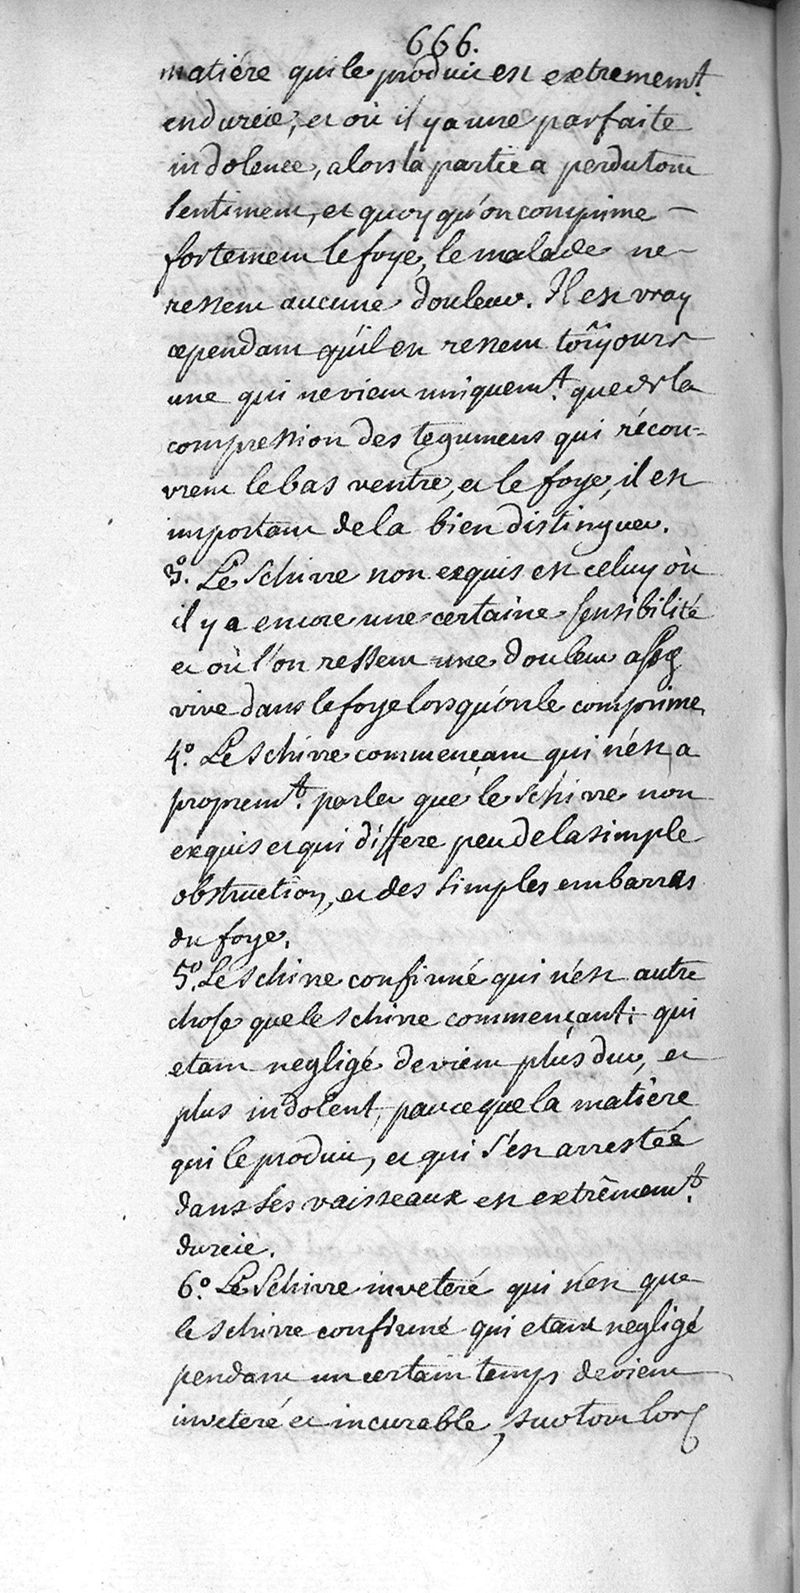 666.
matiére qui le produit est extremem.t
endurcie, et où il y a une parfaite
indolence, alors la partie a perdu tout
sentiment, et quoy qu'on comprime
fortement le foye, le malade ne
ressent aucune douleur. Il est vray
cependant qu'il en ressent toûjours
une qui ne vient uniquem.t que de la
compression des tegumens qui récou-
vrent le bas ventre, et le foye, il est
important de la bien distinguer.
3.o Le Schirre non exquis est celuy où
il y a encore une certaine sensibilité
et où l'on ressent une douleur assez
vive dans le foye lorsqu'on le comprime
4.o Le Schirre commençant qui n'est a
proprem.t parler que le schirre non
exquis et qui differe peu de la simple
obstruction, et des simples embarras
du foye.
5.o Le schirre confirmé qui n'est autre
chose que le schirre commençant; qui
etant negligé devient plus dur, et
plus indolent, parceque la matière
qui le produit, et qui s'est arrestée
dans les vaisseaux est extrêmem.t
durcie.
6.o Le Schirre inveteré qui n'est que
le schirre confirmé qui etant negligé
pendant un certain temps devient
inveteré et incurable, surtout lors